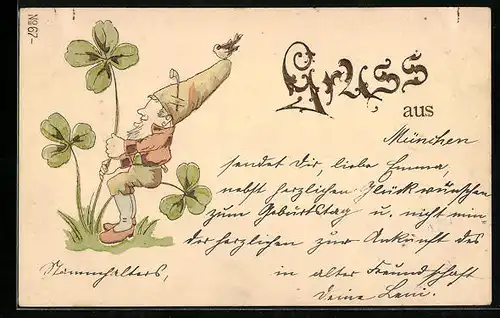 No 67-
Gruss
aus
München
sendet Dir, liebe Emma,
nebst herzlichen Glückwünschen
zum Geburtstag u. nicht min
der herzlichen zur Ankunft des
Stammhalters, in alter Freundschaft
Deine Leni.